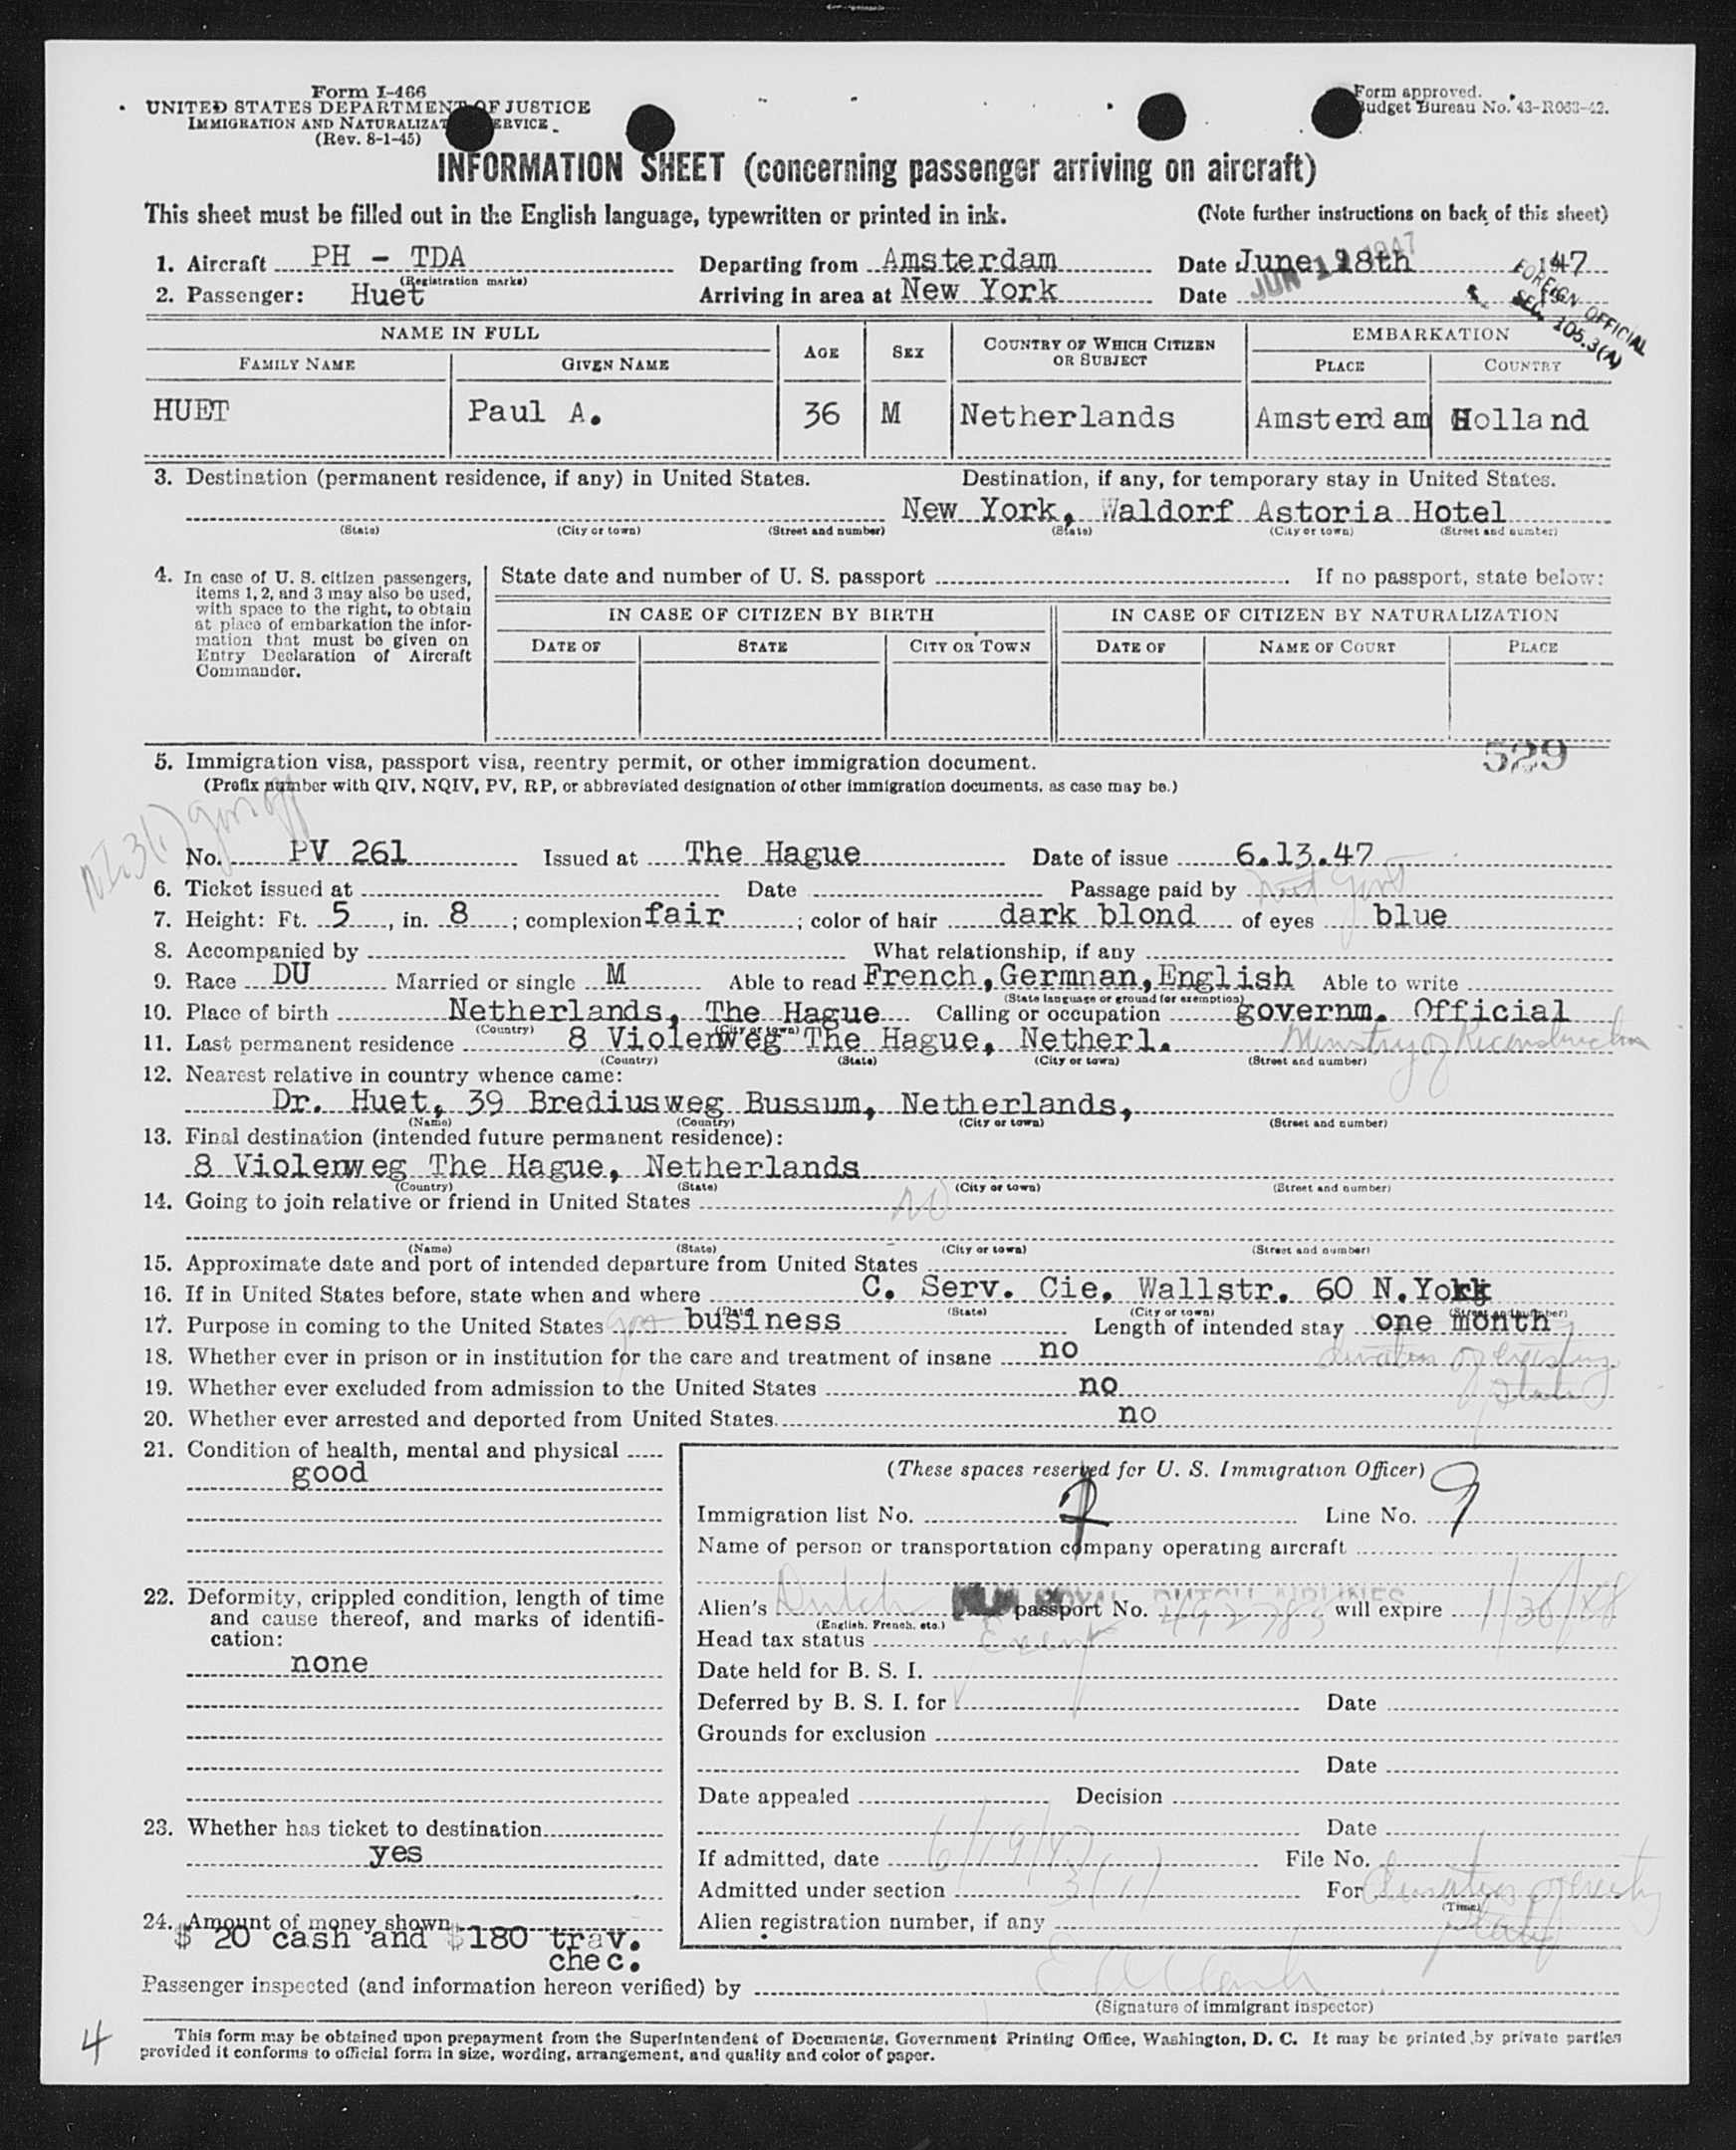 Form I-466
UNITED STATES DEPARTMENT OF JUSTICE
IMMIGRATION AND NATURALIZATION SERVICE
(Rev. 8-1-45)
Form approved.
Budget Bureau No. 43-R063-42.
INFORMATION SHEET (concerning passenger arriving on aircraft)
This sheet must be filled out in the English language, typewritten or printed in ink. (Note further instructions on back of this sheet)
1. Aircraft PH - TDA Departing from Amsterdam Date June 18th 1947
(Registration marks)
2. Passenger: Huet Arriving in area at New York Date JUN 19 1947 19
FOREIGN OFFICIAL
SEC. 105.3(A)
NAME IN FULL AGE SEX COUNTRY OF WHICH CITIZEN OR SUBJECT EMBARKATION
FAMILY NAME GIVEN NAME PLACE COUNTRY
HUET Paul A. 36 M Netherlands Amsterdam Holland
3. Destination (permanent residence, if any) in United States. Destination, if any, for temporary stay in United States.
New York, Waldorf Astoria Hotel
(State) (City or town) (Street and number) (State) (City or town) (Street and number)
4. In case of U. S. citizen passengers,
items 1, 2, and 3 may also be used,
with space to the right, to obtain
at place of embarkation the infor-
mation that must be given on
Entry Declaration of Aircraft
Commander.
State date and number of U. S. passport If no passport, state below:
IN CASE OF CITIZEN BY BIRTH IN CASE OF CITIZEN BY NATURALIZATION
DATE OF STATE CITY OR TOWN DATE OF NAME OF COURT PLACE
529
5. Immigration visa, passport visa, reentry permit, or other immigration document.
(Prefix number with QIV, NQIV, PV, RP, or abbreviated designation of other immigration documents, as case may be.)
No. PV 261 Issued at The Hague Date of issue 6.13.47
6. Ticket issued at Date Passage paid by
7. Height: Ft. 5, in. 8; complexion fair; color of hair dark blond of eyes blue
8. Accompanied by What relationship, if any
9. Race DU Married or single M Able to read French, Germnan, English Able to write
(State language or ground for exemption)
10. Place of birth Netherlands, The Hague Calling or occupation governm. Official
(Country) (City or town)
Ministry of Reconstruction
11. Last permanent residence 8 Violenweg The Hague, Netherl.
(Country) (State) (City or town) (Street and number)
12. Nearest relative in country whence came:
Dr. Huet, 39 Brediusweg Bussum, Netherlands,
(Name) (Country) (City or town) (Street and number)
13. Final destination (intended future permanent residence):
8 Violenweg The Hague, Netherlands
(Country) (State) (City or town) (Street and number)
14. Going to join relative or friend in United States no
(Name) (State) (City or town) (Street and number)
15. Approximate date and port of intended departure from United States
16. If in United States before, state when and where C. Serv. Cie. Wallstr. 60 N.York
(Date) (State) (City or town) (Street and number)
17. Purpose in coming to the United States business Length of intended stay one month
duration of existing status
18. Whether ever in prison or in institution for the care and treatment of insane no
19. Whether ever excluded from admission to the United States no
20. Whether ever arrested and deported from United States. no
21. Condition of health, mental and physical
good
22. Deformity, crippled condition, length of time
and cause thereof, and marks of identifi-
cation:
none
23. Whether has ticket to destination
yes
24. Amount of money shown
$ 20 cash and $180 trav.
chec.
(These spaces reserved for U. S. Immigration Officer)
Immigration list No. 2 Line No. 9
Name of person or transportation company operating aircraft
KLM ROYAL DUTCH AIRLINES
Alien's Dutch passport No. 492783 will expire 1/30/48
(English, French, etc.)
Head tax status Exempt
Date held for B. S. I.
Deferred by B. S. I. for Date
Grounds for exclusion
Date
Date appealed Decision
Date
If admitted, date 6/19/47 File No.
Admitted under section 3(1) For duration of existing status
(Time)
Alien registration number, if any
Passenger inspected (and information hereon verified) by
(Signature of immigrant inspector)
4
This form may be obtained upon prepayment from the Superintendent of Documents, Government Printing Office, Washington, D. C. It may be printed by private parties
provided it conforms to official form in size, wording, arrangement, and quality and color of paper.